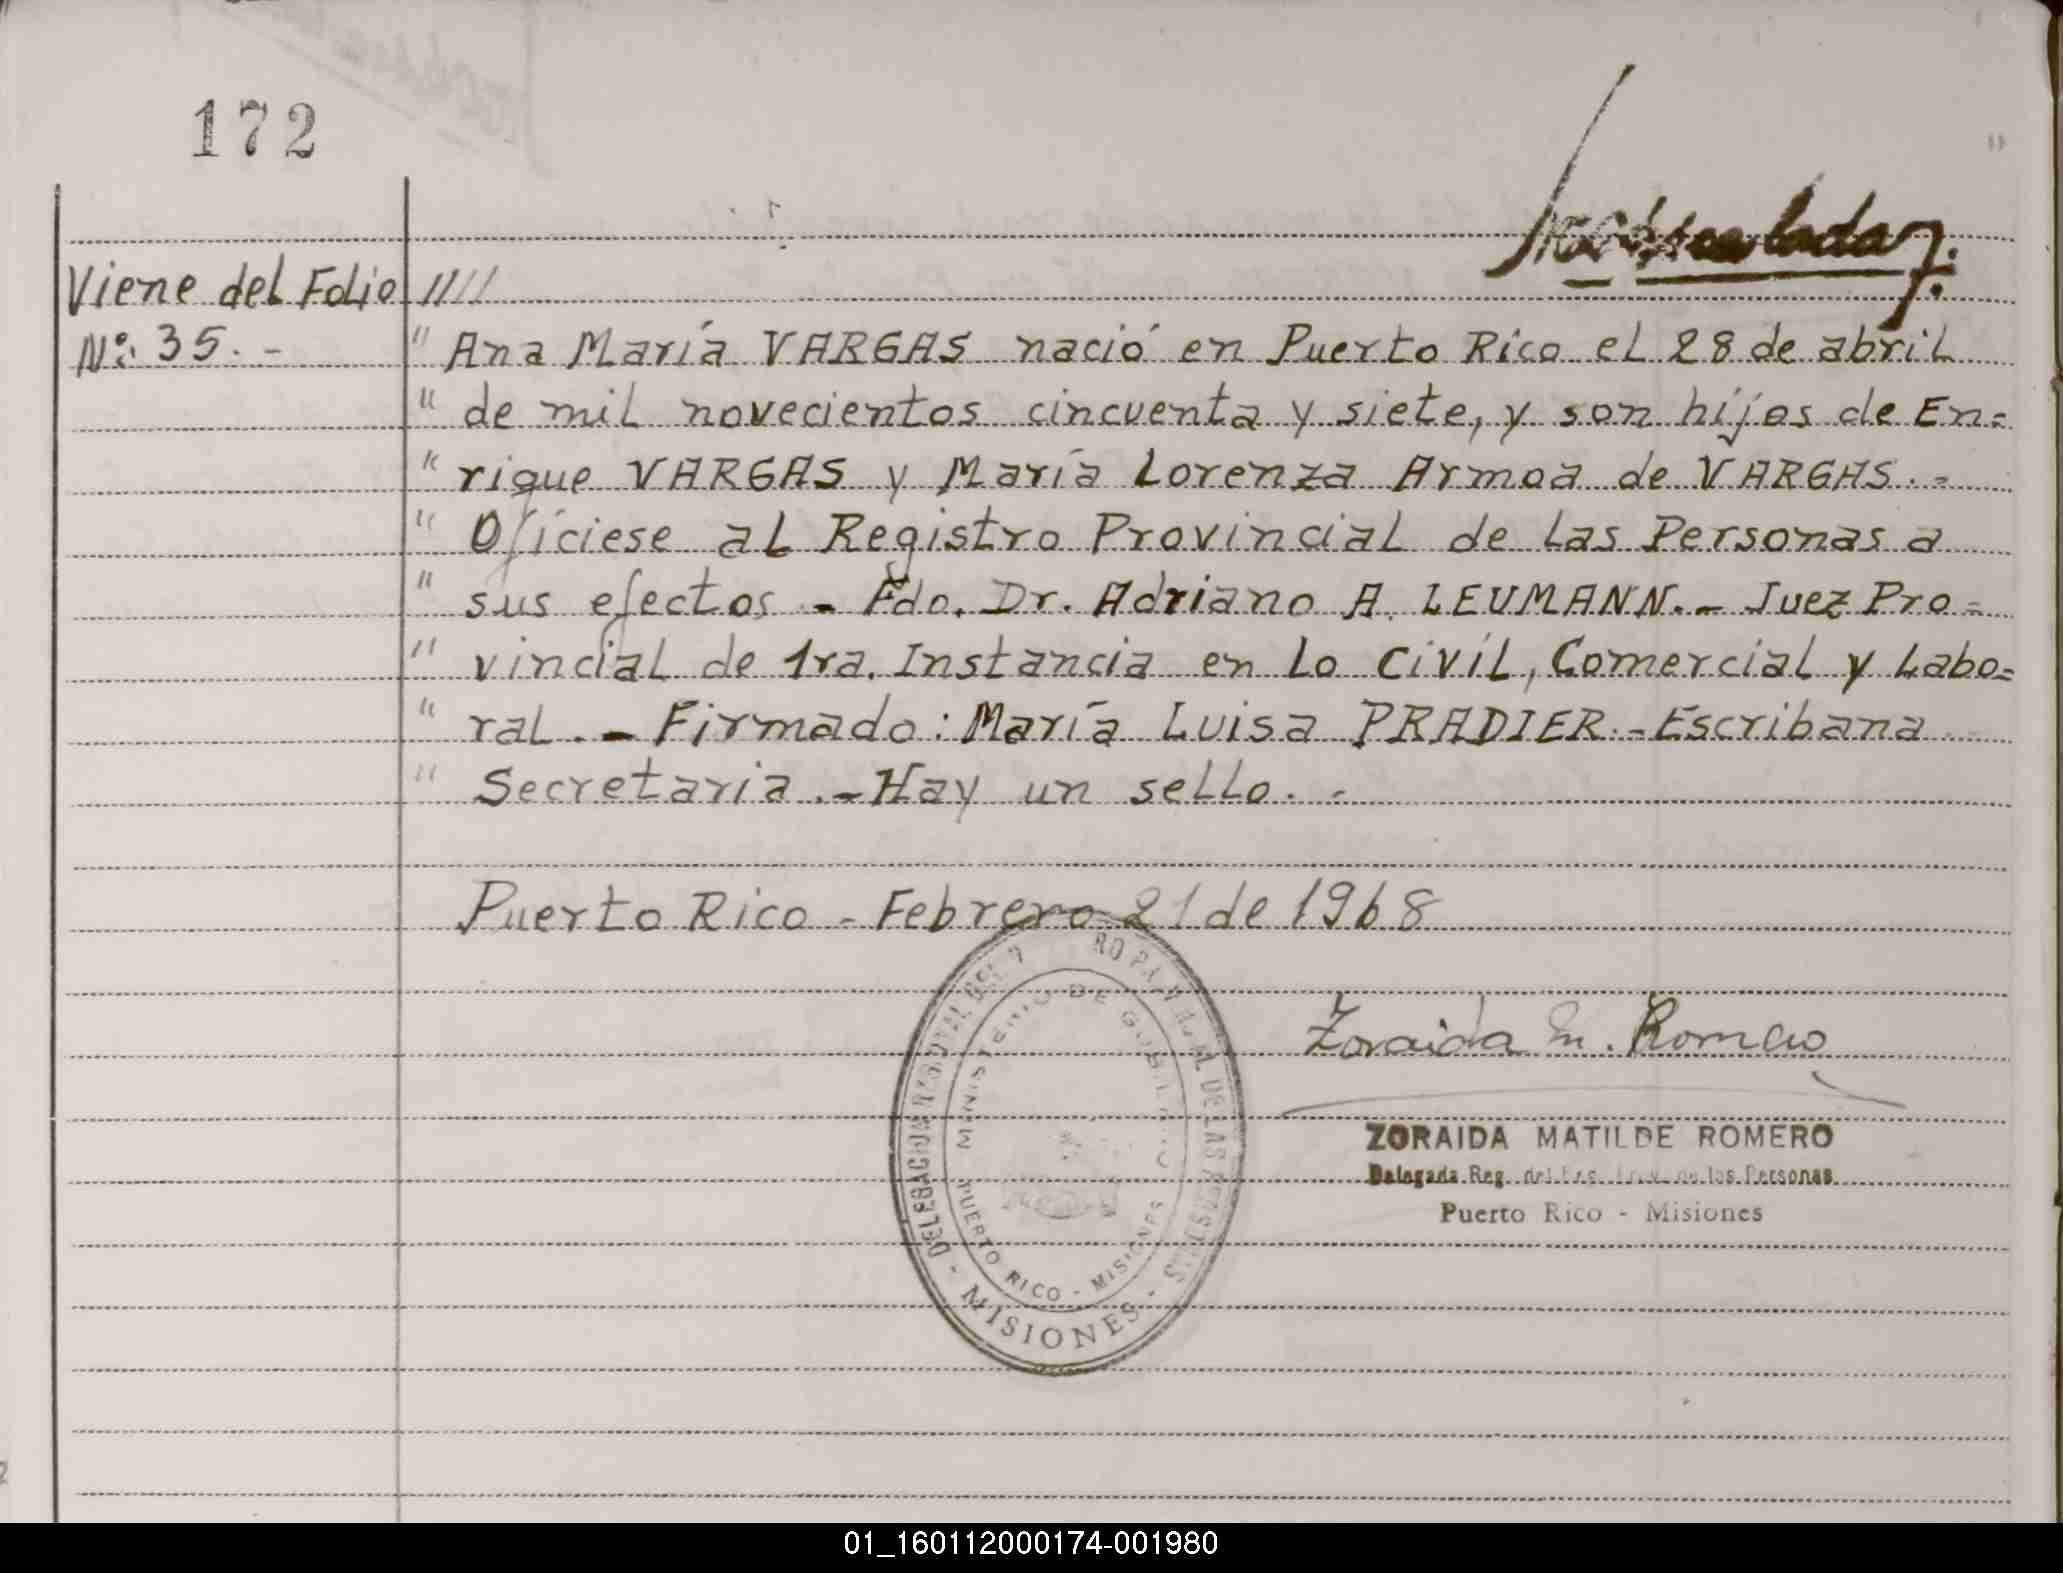 172
Viene del Folio ////
Nº: 35.-
" Ana María VARGAS nació en Puerto Rico el 28 de abril
" de mil novecientos cincuenta y siete, y son hijos de En=
" rique VARGAS y María Lorenza Armoa de VARGAS.-
" Ofíciese al Registro Provincial de las Personas a
" sus efectos.- Fdo. Dr. Adriano A. LEUMANN.- Juez Pro=
" vincial de 1ra. Instancia en lo Civil, Comercial y Labo=
" ral.- Firmado: María Luisa PRADIER.- Escribana
" Secretaria.- Hay un sello.-
Puerto Rico - Febrero 21 de 1968
DELEGACION REGIONAL DEL DE LAS PERSONAS
- MISIONES -
MINISTERIO DE GOBIERNO
PUERTO RICO - MISIONES
Zoraida M. Romero
ZORAIDA MATILDE ROMERO
Delegada Reg. del Reg. Prov. de las Personas
Puerto Rico - Misiones
01_160112000174-001980